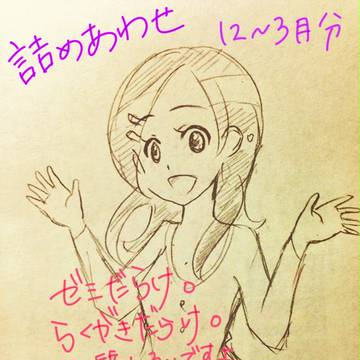 詰めあわせ
12〜3月分
ゼミだらけ。
らくがきだらけ。